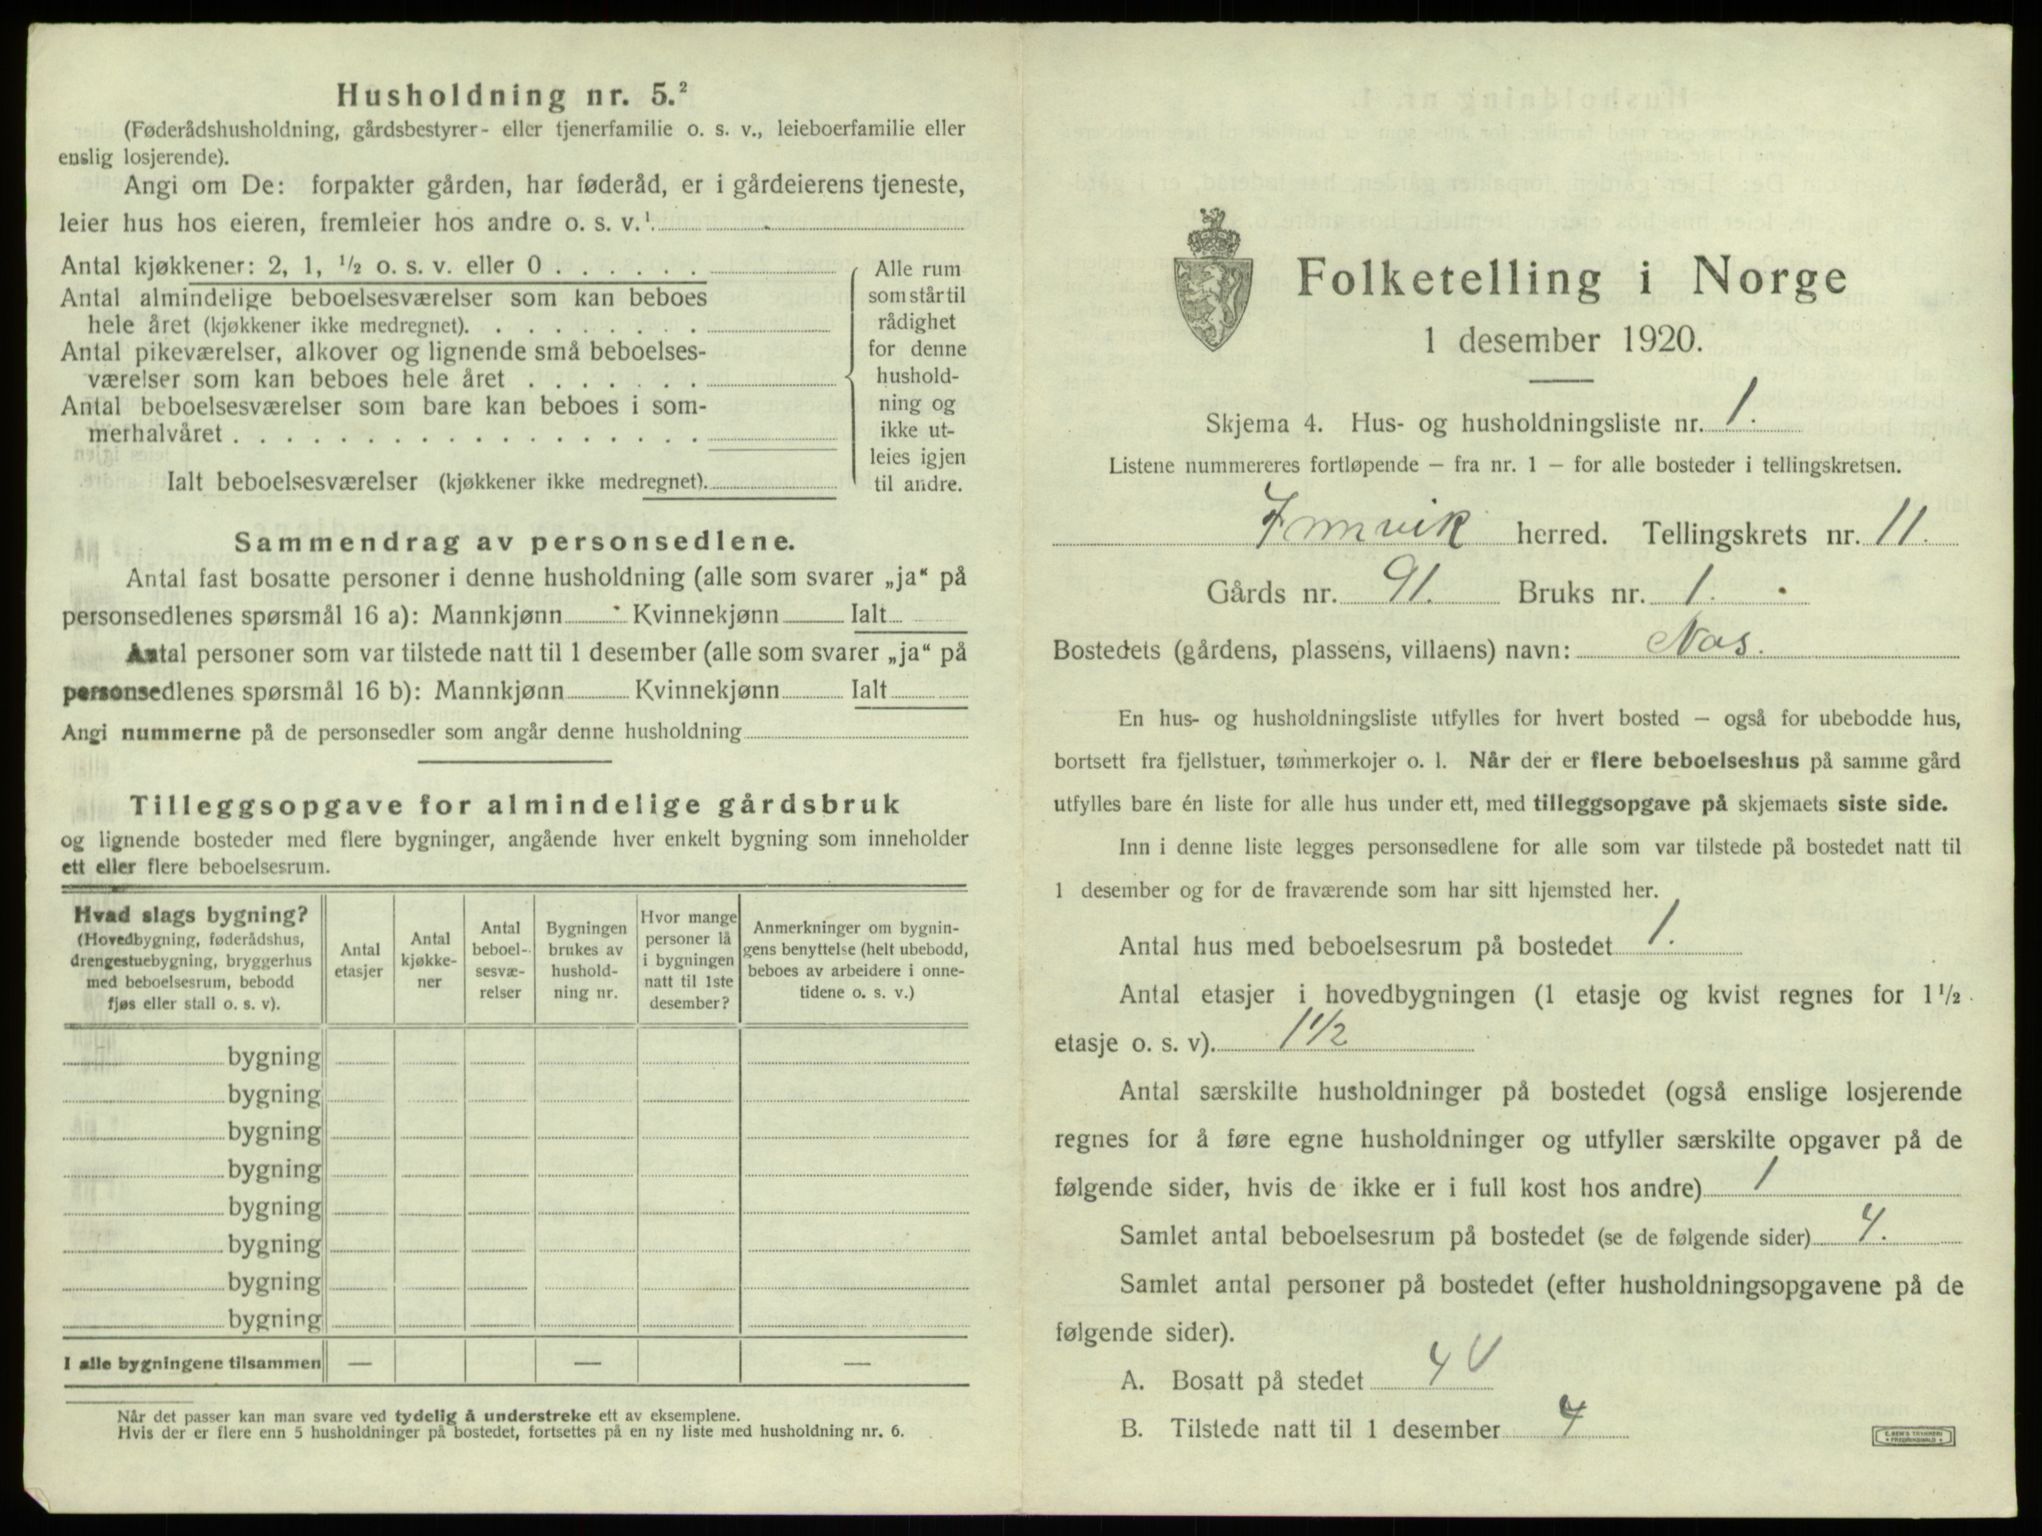 Husholdning nr. 5.²
(Føderådshusholdning, gårdsbestyrer- eller tjenerfamilie o. s. v., leieboerfamilie eller
enslig losjerende).
Angi om De: forpakter gården, har føderåd, er i gårdeierens tjeneste,
leier hus hos eieren, fremleier hos andre o. s. v.¹
Antal kjøkkener: 2, 1, ½ o. s. v. eller 0 . . . . . .
Antal almindelige beboelsesværelser som kan beboes
hele året (kjøkkener ikke medregnet). . . . . . . . .
Antal pikeværelser, alkover og lignende små beboelses-
værelser som kan beboes hele året . . . . . . .
Antal beboelsesværelser som bare kan beboes i som-
merhalvåret . . . . . . . . . . . . . . . . . .
Ialt beboelsesværelser (kjøkkener ikke medregnet).
Alle rum
som står til
rådighet
for denne
hushold-
ning og
ikke ut-
leies igjen
til andre.
Sammendrag av personsedlene.
Antal fast bosatte personer i denne husholdning (alle som svarer „ja“ på
personsedlenes spørsmål 16 a): Mannkjønn Kvinnekjønn Ialt
Antal personer som var tilstede natt til 1 desember (alle som svarer „ja“ på
personsedlenes spørsmål 16 b): Mannkjønn Kvinnekjønn Ialt
Angi nummerne på de personsedler som angår denne husholdning
Tilleggsopgave for almindelige gårdsbruk
og lignende bosteder med flere bygninger, angående hver enkelt bygning som inneholder
ett eller flere beboelsesrum.
Hvad slags bygning?
(Hovedbygning, føderådshus,
drengestuebygning, bryggerhus
med beboelsesrum, bebodd
fjøs eller stall o. s. v).
Antal
etasjer
Antal
kjøkke-
ner
Antal
beboel-
sesvæ-
relser
Bygningen
brukes av
hushold-
ning nr.
Hvor mange
personer lå
i bygningen
natt til 1ste
desember?
Anmerkninger om bygnin-
gens benyttelse (helt ubebodd,
beboes av arbeidere i onne-
tidene o. s. v.)
bygning
bygning
bygning
bygning
bygning
bygning
bygning
bygning
I alle bygningene tilsammen — — —
Når det passer kan man svare ved tydelig å understreke ett av eksemplene.
Hvis der er flere enn 5 husholdninger på bostedet, fortsettes på en ny liste med husholdning nr. 6.
Folketelling i Norge
1 desember 1920.
Skjema 4. Hus- og husholdningsliste nr. 1.
Listene nummereres fortløpende – fra nr. 1 – for alle bosteder i tellingskretsen.
Innvik herred. Tellingskrets nr. 11.
Gårds nr. 91. Bruks nr. 1.
Bostedets (gårdens, plassens, villaens) navn: Nos.
En hus- og husholdningsliste utfylles for hvert bosted – også for ubebodde hus,
bortsett fra fjellstuer, tømmerkojer o. l. Når der er flere beboelseshus på samme gård
utfylles bare én liste for alle hus under ett, med tilleggsopgave på skjemaets siste side.
Inn i denne liste legges personsedlene for alle som var tilstede på bostedet natt til
1 desember og for de fraværende som har sitt hjemsted her.
Antal hus med beboelsesrum på bostedet 1.
Antal etasjer i hovedbygningen (1 etasje og kvist regnes for 1½
etasje o. s. v). 1½
Antal særskilte husholdninger på bostedet (også enslige losjerende
regnes for å føre egne husholdninger og utfyller særskilte opgaver på de
følgende sider, hvis de ikke er i full kost hos andre) 1
Samlet antal beboelsesrum på bostedet (se de følgende sider) 4.
Samlet antal personer på bostedet (efter husholdningsopgavene på de
følgende sider).
A. Bosatt på stedet 4
B. Tilstede natt til 1 desember 4